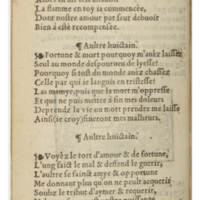 La flamme en toy ia commencée,
Dont nostre amour par seut debuoir
Bien a esté recompensée.
¶ Aultre huictain.
Fortune & mort pourquoy m'auez laissé
Seul au monde despourueu de lyesse?
Pourquoy si tost du monde auez chassé
Celle par qui ie languis en tristesse?
Las mamye, puis que la mort m'oppresse
Et que ne puis mettre à fin mes douleurs,
Deprendre la vie au mort prendre ma lesse
Ainsi(ce croy)finiront mes malheurs.
¶ Aultre huictain.
Voyez le tort d'amour & de fortune,
L'ung faict le mal & deffend le guerir,
L'aultre se fainct amye & opportune
Me donnant plus qu'on ne peult acquerir
Soubz le tribut d'aymer & requerir,